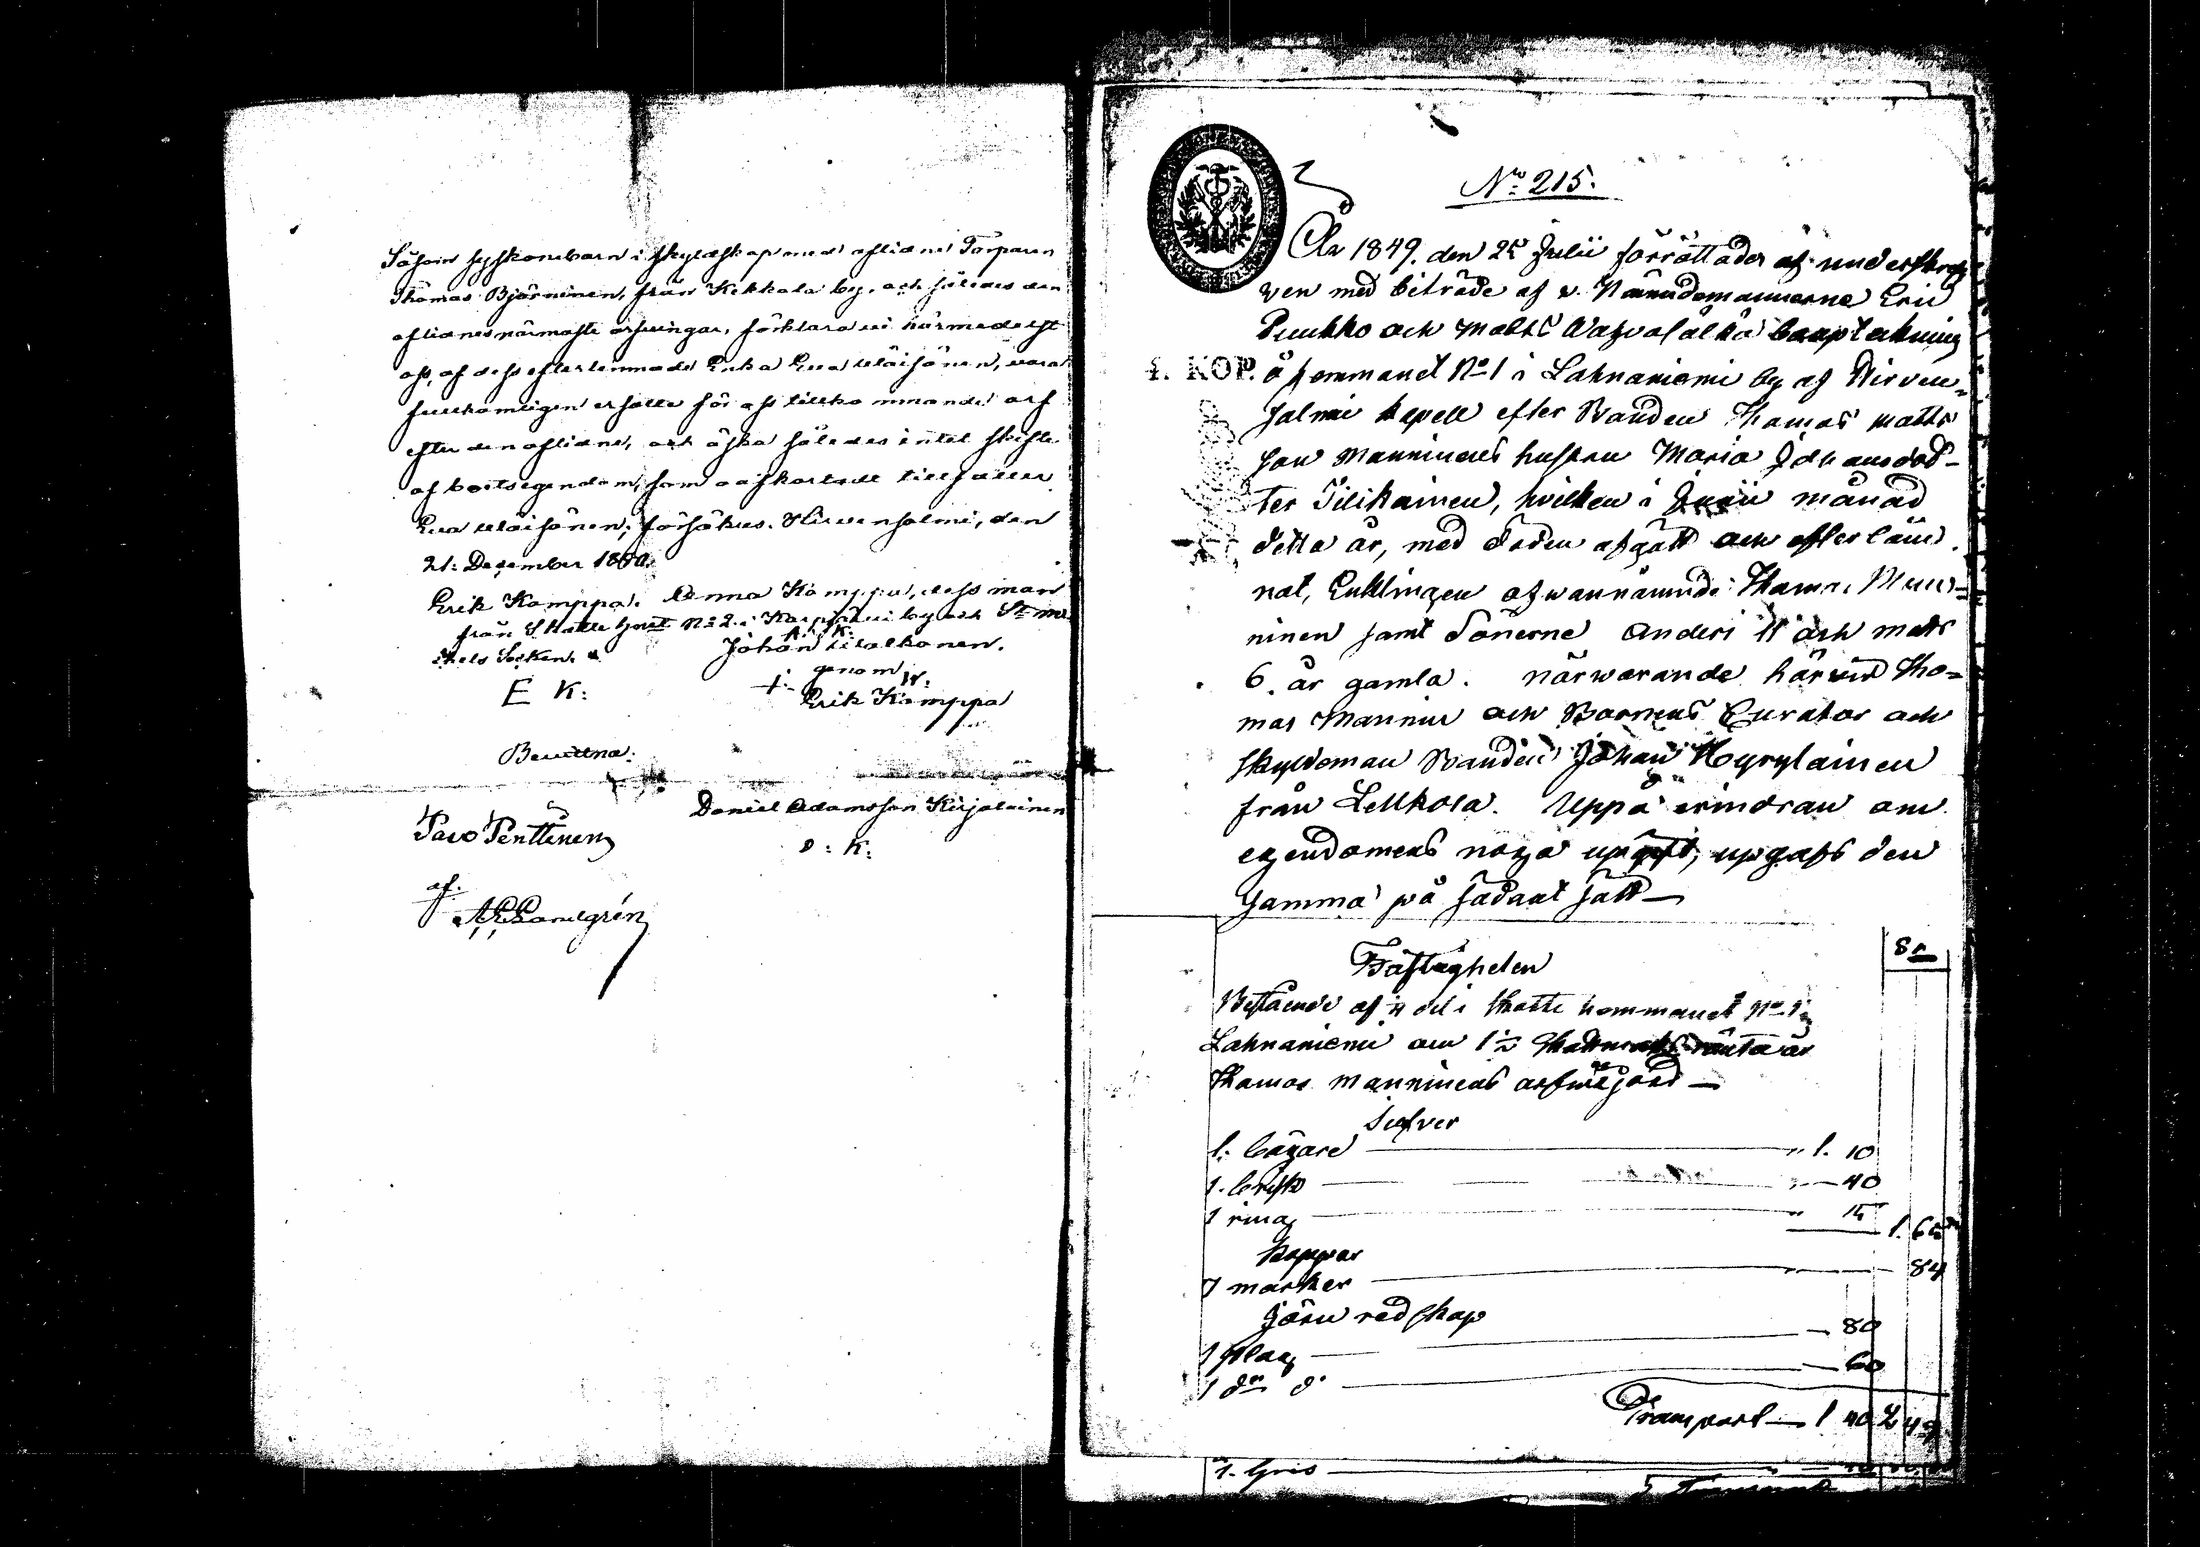 Såsom syskonebarn i skyldskap med aflidne Torparen
Thomas Björninen, från Kekkola by, och således den
aflidnes närmaste arfvingar, förklara vi härmedelst
oss, af dess efterlemnade Enka Eva Wäisänen, vara
fullkomligen erhållit för oss tillkommande arf
efter den aflidne, och önska således intet skifte
af boets egendom, som oafkortadt tillfaller
Eva Wäisänen; försäkras. Hirvensalmi, den
21. December 1850.
Erik Kamppa. Anna Kamppa, dess man
från Skatte Hemt No 2 i Karpjärvi by och St. Mi-
chels Socken.
Johan Walkonen.
genom
E K:
Erik Kamppa
Bevittna:
Pavo Penttinen
Daniel Adamsson Kirjalainen
D: K:
af.
No 215.
År 1849. den 25 Julii förrättades af underskref-
ven med biträde af v. Nämndemannerne Eric
Puukko och Matts bouptekning
4. KOP. å hemmanet No 1 i Lahnaniemi by af Hirven-
salmi kapell efter Bonden Thomas Matts
son Manninens hustru Maria Johansdot-
ter Tilikainen, hvilken i Junii månad
detta år, med döden afgått och efterläm
nat, Enklingen ofvannämnde Thomas Man-
ninen samt Sönerne Anders 11 och Mats
6. år gamla. närwarande härvid Tho-
mas Manninen och Barnens Curator och
skyldeman Bonden Johan Hyrylainen
från Lellkola. Uppå erindran om
egendomens noga upgift, upgafs den
samma på sådant sätt—
Sr
Fastigheten
Bestående af 1/4 del i Skatte hemmanet No 1 i
Lahnaniemi om 1 1/2 Skattmarks ränta är
Thomas Manninens arfwejord —
Silfver
1. bägare " 1. 10
1. brisk " — 40
1 ring " 15
1. 65
Koppar
7 marker — 84
Järn redskap
1 plog — 80
1 do do — 60
Transport — 1 40 2 49
1. Gris